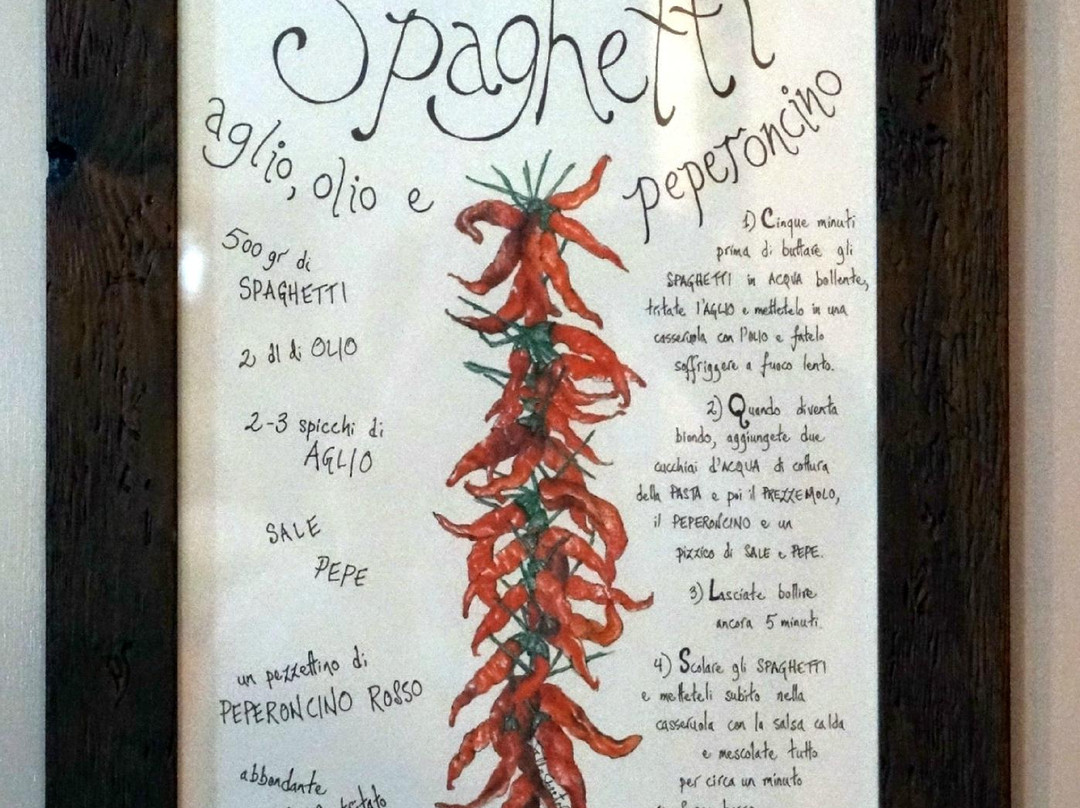 Spaghetti
aglio, olio e peperoncino
500 gr di
SPAGHETTI
2 dl di OLIO
2-3 spicchi di
AGLIO
SALE
PEPE
un pezzettino di
PEPERONCINO ROSSO
abbondante
tritato
1) Cinque minuti
prima di buttare gli
SPAGHETTI in ACQUA bollente,
tritate l'AGLIO e mettetelo in una
casseruola con l'OLIO e fatelo
soffriggere a fuoco lento.
2) Quando diventa
biondo, aggiungete due
cucchiai d'ACQUA di cottura
della PASTA e poi il PREZZEMOLO,
il PEPERONCINO e un
pizzico di SALE e PEPE.
3) Lasciate bollire
ancora 5 minuti.
4) Scolare gli SPAGHETTI
e metteteli subito nella
casseruola con la salsa calda
e mescolate tutto
per circa un minuto